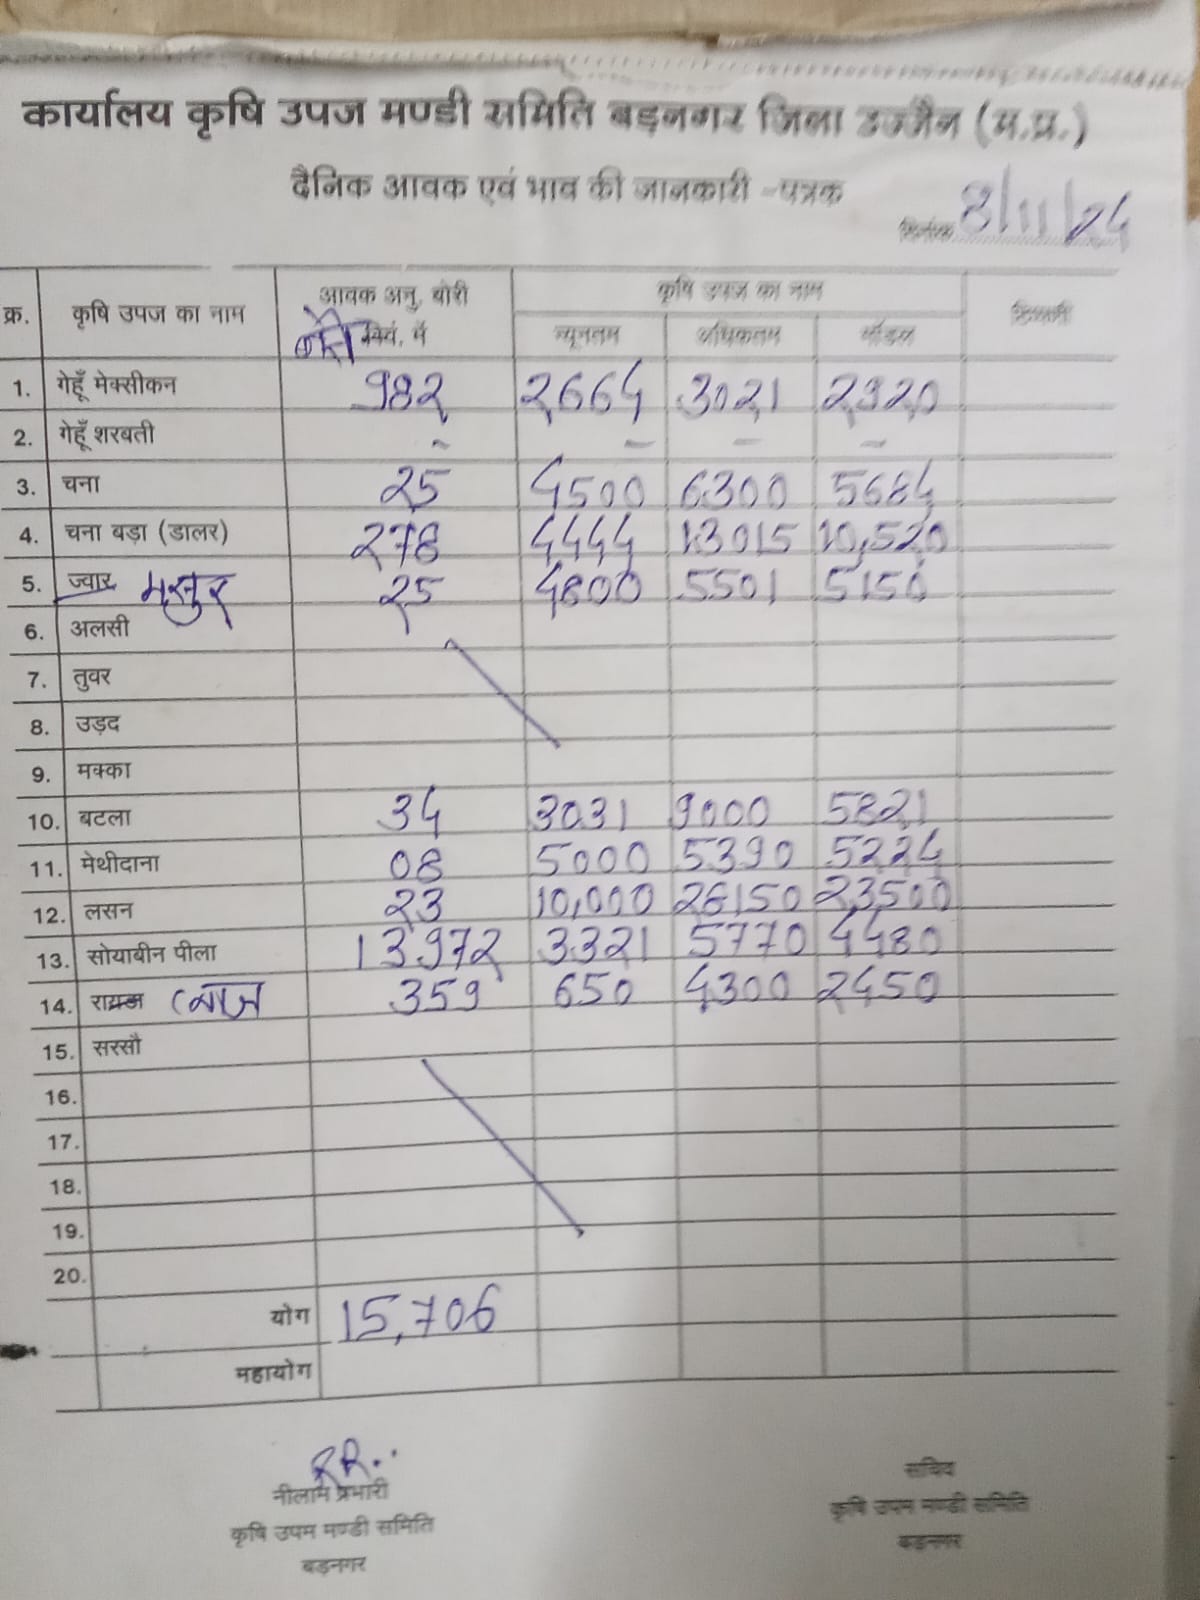 कार्यालय कृषि उपज मण्डी समिति बड़नगर जिला उज्जैन (म.प्र.)
दैनिक आवक एवं भाव की जानकारी -पत्रक
दिनांक 8/11/24
क्र. कृषि उपज का नाम आवक अनु. बोरी क्विं. में कृषि उपज का नाम टिप्पणी
न्यूनतम अधिकतम मॉडल
1. गेहूँ मेक्सीकन 982 2664 3021 2920
2. गेहूँ शरबती - - - -
3. चना 25 4500 6300 5684
4. चना बड़ा (डालर) 278 4444 13015 10,520
5. ज्वार मसुर 25 4800 5501 5150
6. अलसी
7. तुवर
8. उड़द
9. मक्का
10. बटला 34 3031 9000 5821
11. मेथीदाना 08 5000 5390 5224
12. लसन 23 10,000 26150 23500
13. सोयाबीन पीला 13972 3321 5770 4480
14. रायडा 359 650 4300 2450
15. सरसौ
16.
17.
18.
19.
20.
योग 15,706
महायोग
RR..
नीलाम प्रभारी
कृषि उपम मण्डी समिति
बड़नगर
सचिव
कृषि उपम मण्डी समिति
बड़नगर